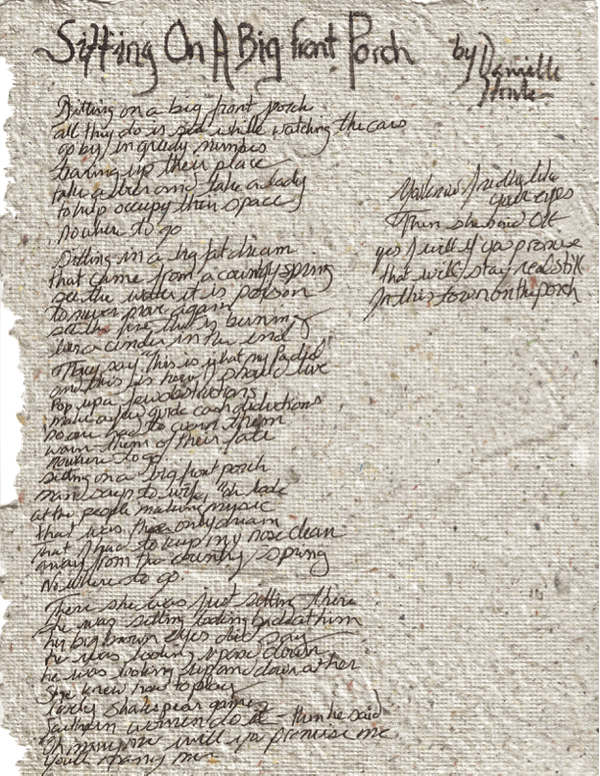 Sitting On A Big Front Porch
by Danielle
Sitting on a big front porch
all they do is sit while watching the cars
go by in greedy numbers
their place
take a and take a lady
to help occupy their space
Nowhere to go
Sitting in a big fat dream
that came from a country spring
see the water it is poison
to never again
see the fire that is burning
a cinder in the end
They say this is what my
and this is how I should live
Pop up a few
make a few quick
to them
warn them of their fate
Nowhere to go
Sitting on a big front porch
man says to wife, "
at the people making music
that was only dream
that I had to keep my nose clean
away from the country spring
Nowhere to go.
There she was just sitting there
He was sitting looking at him
big brown eyes did say
he was looking up and down
he was looking up and down at her
She knew how to play
games
Southern women do then he said
Oh will you promise me
You'll marry me
You know I really like
your eyes
Then she said OK
yes I will if you promise
that we'll stay real still
In this town on the porch